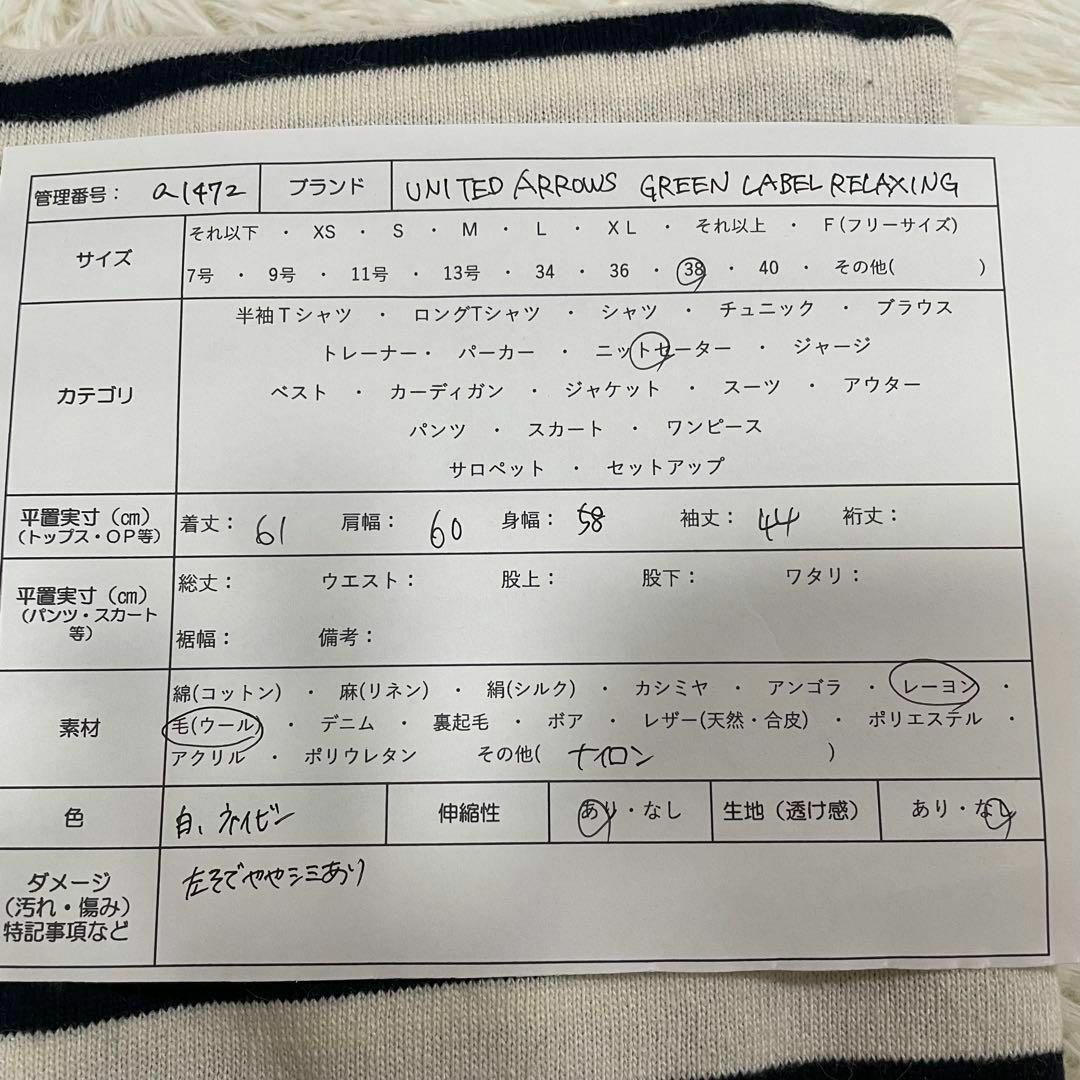 管理番号： a1472 ブランド UNITED ARROWS GREEN LABEL RELAXING
サイズ
それ以下 ・ XS ・ S ・ M ・ L ・ XL ・ それ以上 ・ F(フリーサイズ)
7号 ・ 9号 ・ 11号 ・ 13号 ・ 34 ・ 36 ・ 38 ・ 40 ・ その他( )
カテゴリ
半袖Tシャツ ・ ロングTシャツ ・ シャツ ・ チュニック ・ ブラウス
トレーナー・ パーカー ・ ニットセーター ・ ジャージ
ベスト ・ カーディガン ・ ジャケット ・ スーツ ・ アウター
パンツ ・ スカート ・ ワンピース
サロペット ・ セットアップ
平置実寸（㎝）
（トップス・OP等）
着丈： 61 肩幅： 60 身幅： 58 袖丈： 44 裄丈：
平置実寸（㎝）
（パンツ・スカート
等）
総丈： ウエスト： 股上： 股下： ワタリ：
裾幅： 備考：
素材
綿(コットン) ・ 麻(リネン) ・ 絹(シルク) ・ カシミヤ ・ アンゴラ ・ レーヨン ・
毛(ウール) ・ デニム ・ 裏起毛 ・ ボア ・ レザー(天然・合皮) ・ ポリエステル ・
アクリル ・ ポリウレタン その他( ナイロン )
色 白、ネイビー 伸縮性 あり・なし 生地（透け感） あり・なし
ダメージ
（汚れ・傷み）
特記事項など
左そでややシミあり